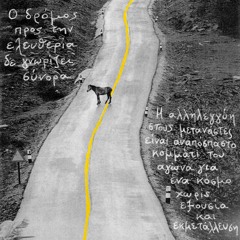 Ο δρόμος
προς την
ελευθερία
δε γνωρίζει
σύνορα
Η αλληλεγγύη
στους μετανάστες
είναι αναπόσπαστο
κομμάτι του
αγώνα για
ένα κόσμο
χωρίς
εξουσία
και
εκμετάλλευση